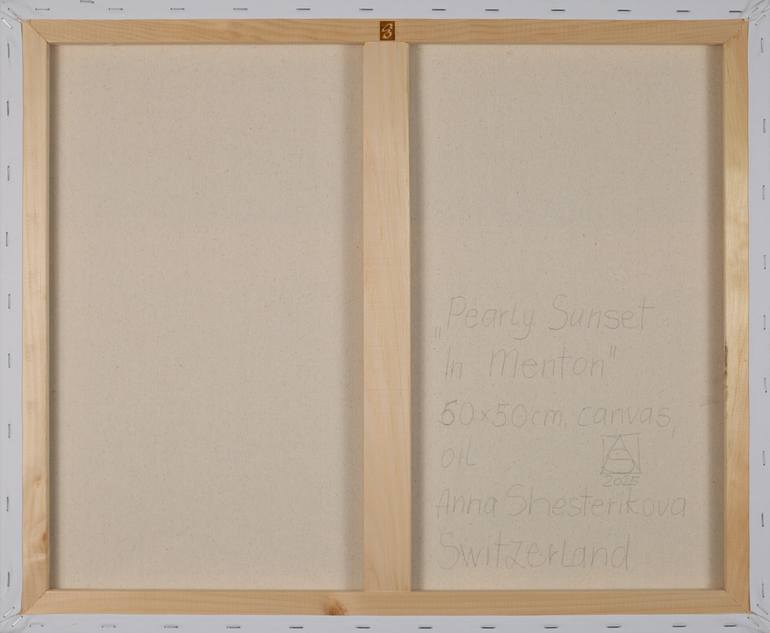 „Pearly Sunset
In Menton"
60×50cm, canvas,
oil
2025
Anna Shesterikova
Switzerland